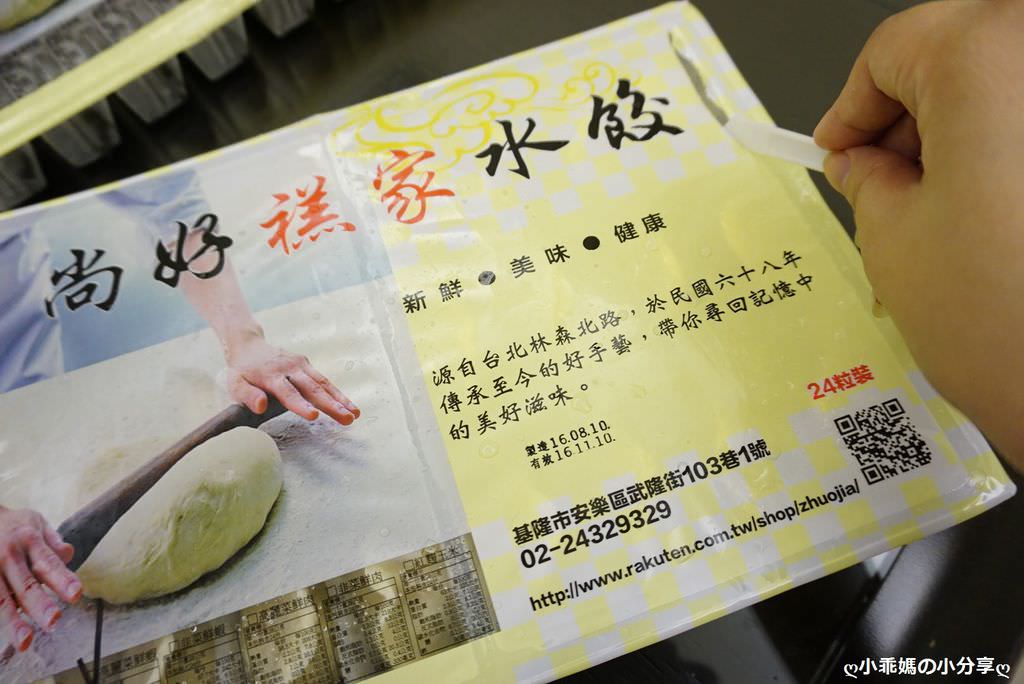 尚好禚家水餃
新鮮●美味●健康
源自台北林森北路，於民國六十八年
傳承至今的好手藝，帶你尋回記憶中
的美好滋味。
24粒裝
製造16.08.10.
有效16.11.10.
基隆市安樂區武隆街103巷1號
02-24329329
http://www.rakuten.com.tw/shop/zhuojia/
ღ小乖媽の小分享ღ